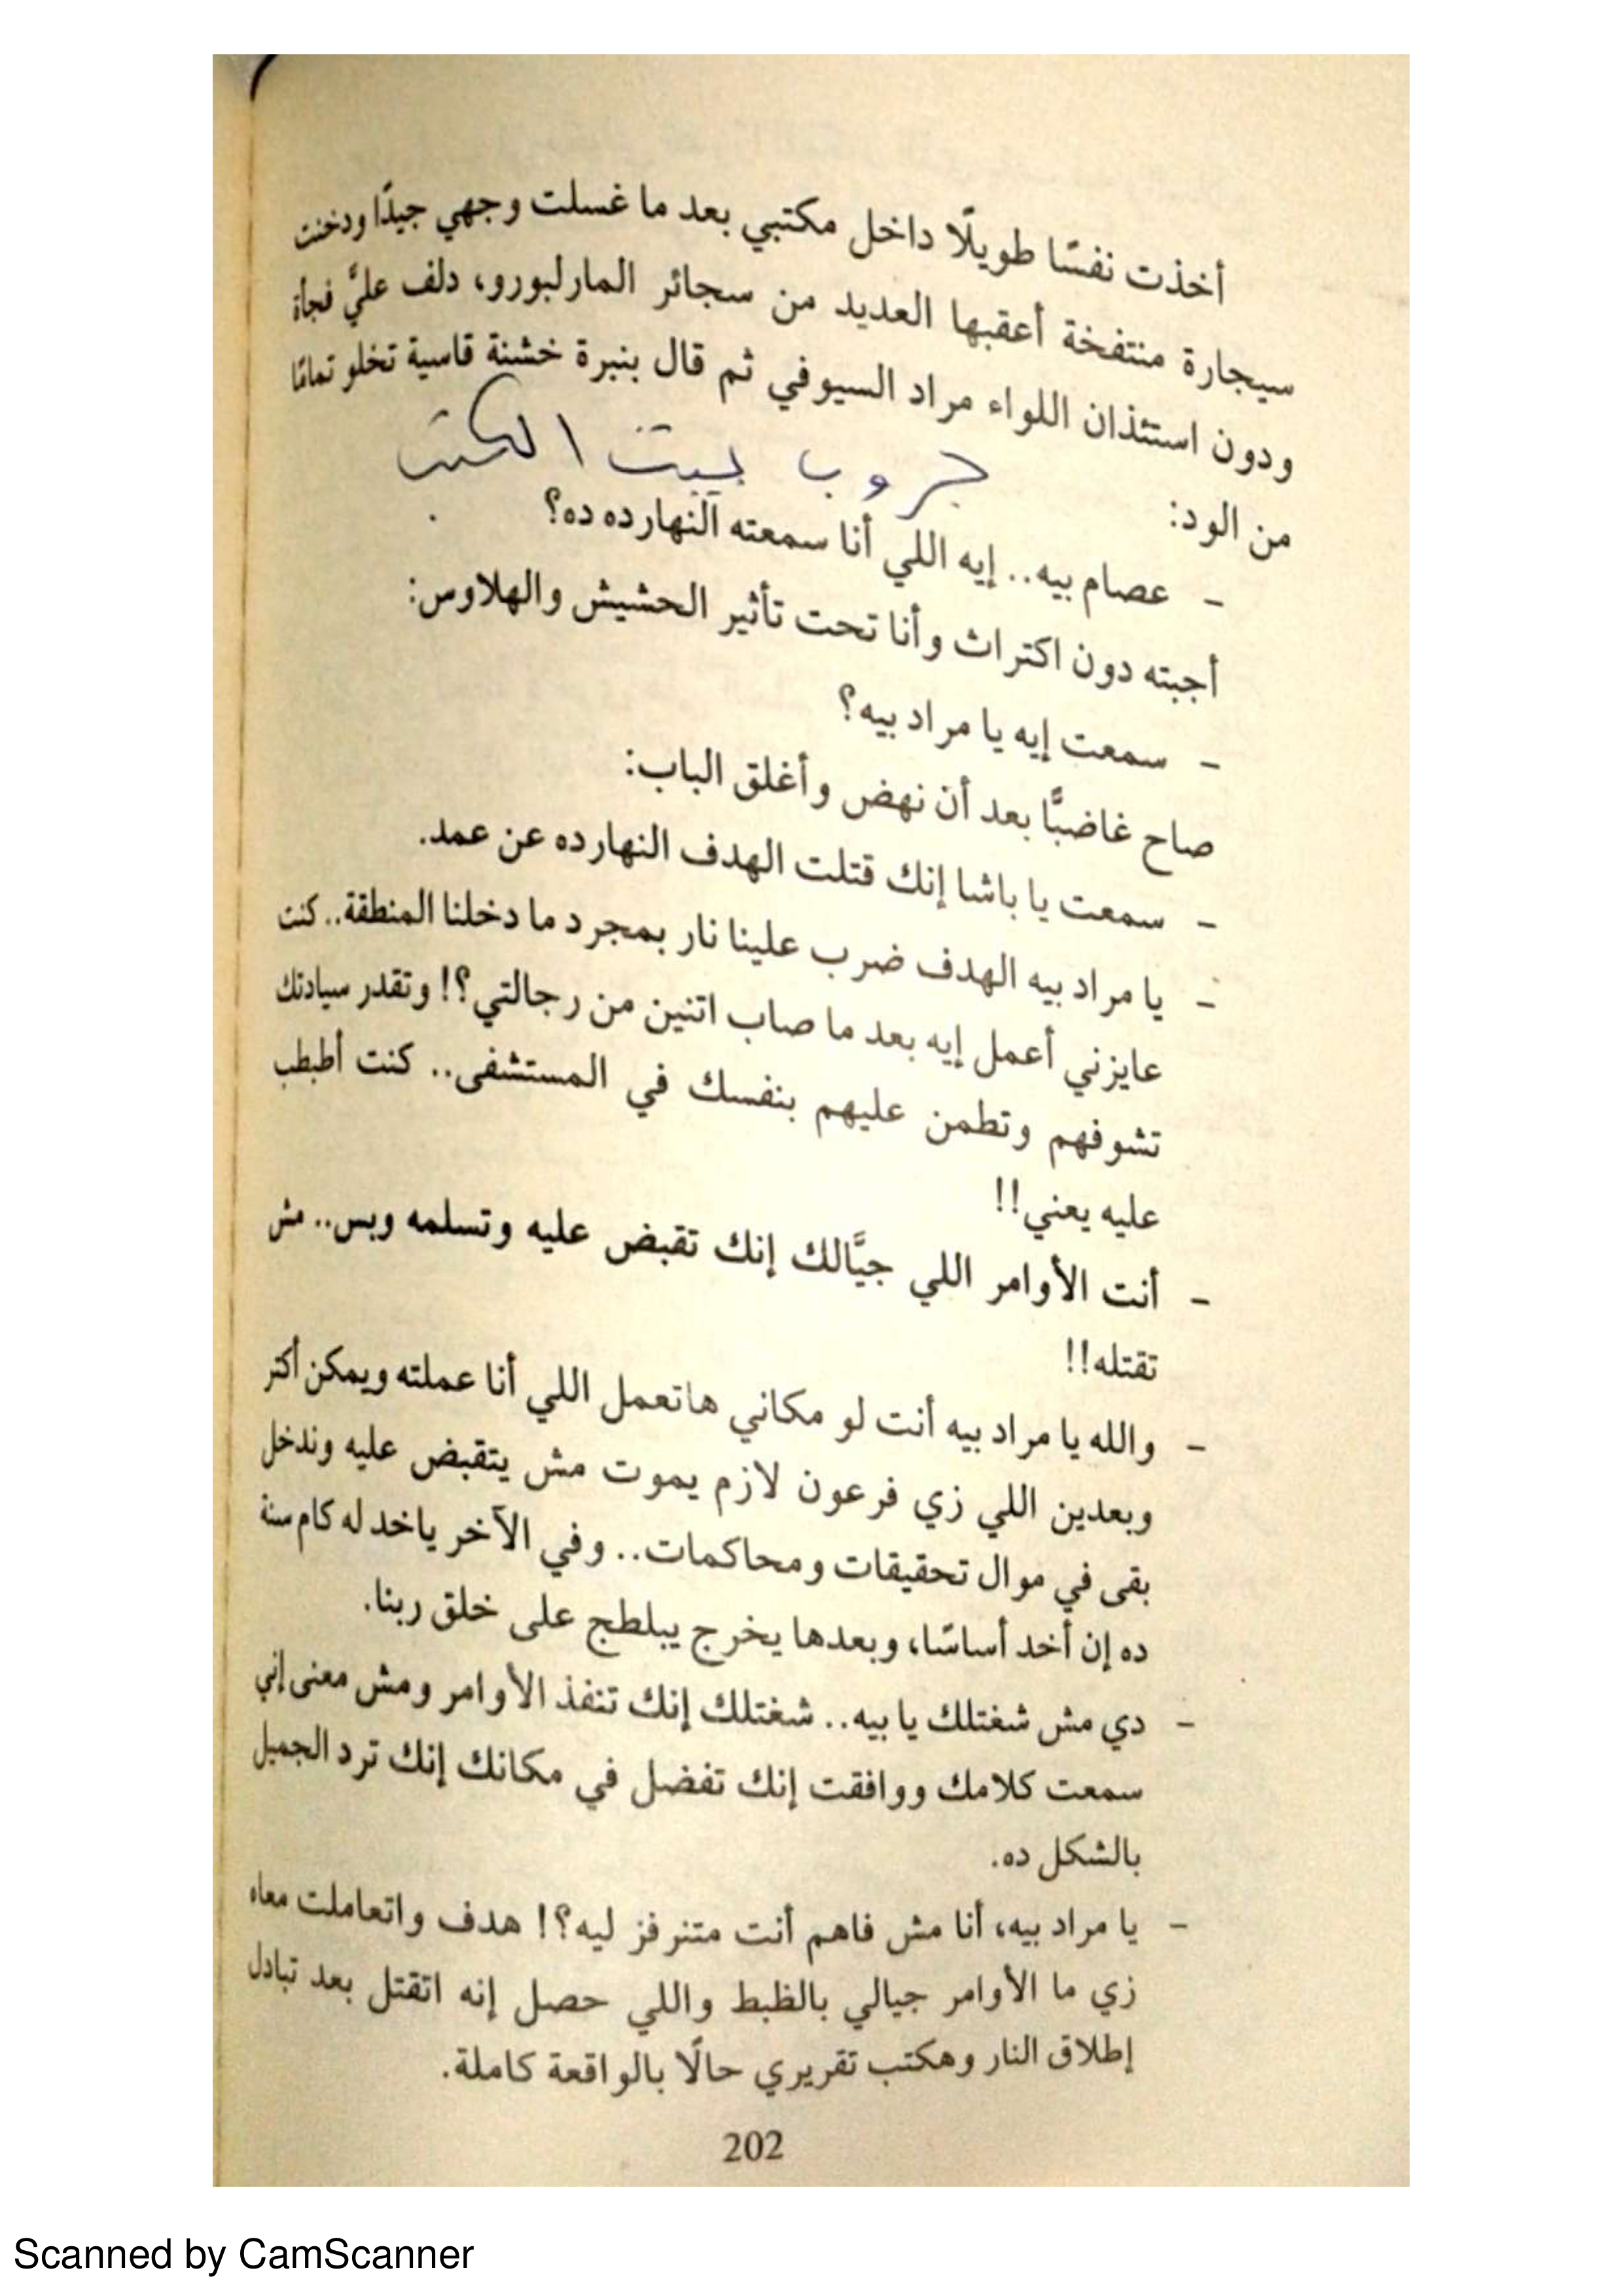 أخذت نفسًا طويلًا داخل مكتبي بعد ما غسلت وجهي جيدًا ودخنت
سيجارة منتفخة أعقبها العديد من سجائر المارلبورو، دلف عليَّ فجأة
ودون استئذان اللواء مراد السيوفي ثم قال بنبرة خشنة قاسية تخلو تمامًا
من الود:
جروب بيت الكتب
- عصام بيه.. إيه اللي أنا سمعته النهارده ده؟
أجبته دون اكتراث وأنا تحت تأثير الحشيش والهلاوس:
- سمعت إيه يا مراد بيه؟
صاح غاضبًا بعد أن نهض وأغلق الباب:
- سمعت يا باشا إنك قتلت الهدف النهارده عن عمد.
- يا مراد بيه الهدف ضرب علينا نار بمجرد ما دخلنا المنطقة.. كنت
عايزني أعمل إيه بعد ما صاب اتنين من رجالتي؟! وتقدر سيادتك
تشوفهم وتطمن عليهم بنفسك في المستشفى.. كنت أطبطب
عليه يعني!!
- أنت الأوامر اللي جيَّالك إنك تقبض عليه وتسلمه وبس.. مش
تقتله!!
- والله يا مراد بيه أنت لو مكاني هاتعمل اللي أنا عملته ويمكن أكتر
وبعدين اللي زي فرعون لازم يموت مش يتقبض عليه وندخل
بقى في موال تحقيقات ومحاكمات.. وفي الآخر ياخد له كام سنة
ده إن أخد أساسًا، وبعدها يخرج يبلطج على خلق ربنا.
- دي مش شغتلك يا بيه.. شغتلك إنك تنفذ الأوامر ومش معنى إني
سمعت كلامك ووافقت إنك تفضل في مكانك إنك ترد الجميل
بالشكل ده.
- يا مراد بيه، أنا مش فاهم أنت متنرفز ليه؟! هدف واتعاملت معاه
زي ما الأوامر جيالي بالظبط واللي حصل إنه اتقتل بعد تبادل
إطلاق النار وهكتب تقريري حالًا بالواقعة كاملة.
202
Scanned by CamScanner